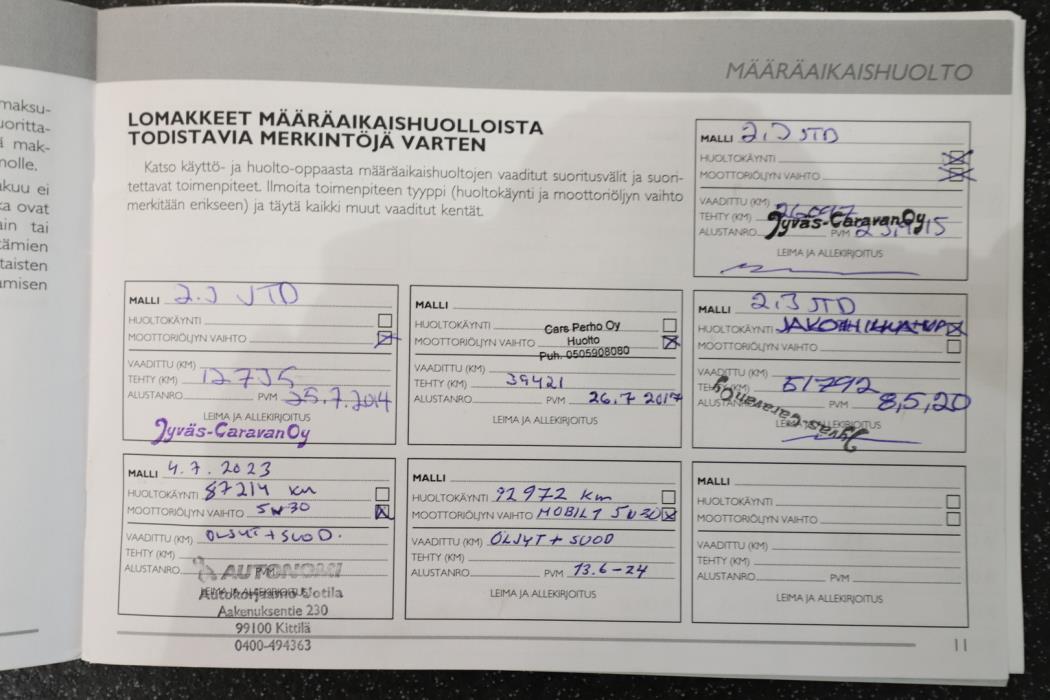 maksu-
uoritta-
mak-
nolle.
akuu ei
ka ovat
ain tai
tämien
taisten
amisen
MÄÄRÄAIKAISHUOLTO
LOMAKKEET MÄÄRÄAIKAISHUOLLOISTA
TODISTAVIA MERKINTÖJÄ VARTEN
Katso käyttö- ja huolto-oppaasta määräaikaishuoltojen vaaditut suoritusvälit ja suori-
tettavat toimenpiteet. Ilmoita toimenpiteen tyyppi (huoltokäynti ja moottoriöljyn vaihto
merkitään erikseen) ja täytä kaikki muut vaaditut kentät.
MALLI 2.3 JTD
HUOLTOKÄYNTI
MOOTTORIÖLJYN VAIHTO
VAADITTU (KM)
TEHTY (KM)
Jyväs-Caravan Oy
ALUSTANRO PVM
LEIMA JA ALLEKIRJOITUS
MALLI 2.3 JTD
HUOLTOKÄYNTI
MOOTTORIÖLJYN VAIHTO
VAADITTU (KM)
TEHTY (KM) 12735
ALUSTANRO PVM 25.7.2014
LEIMA JA ALLEKIRJOITUS
Jyväs-Caravan Oy
MALLI
HUOLTOKÄYNTI Cars Perho Oy
MOOTTORIÖLJYN VAIHTO Huolto
Puh. 0505908080
VAADITTU (KM)
TEHTY (KM) 39421
ALUSTANRO PVM 26.7 2017
LEIMA JA ALLEKIRJOITUS
MALLI 2,3 JTD
HUOLTOKÄYNTI
MOOTTORIÖLJYN VAIHTO
VAADITTU (KM)
TEHTY (KM) 51792
ALUSTANRO PVM 8,5,20
LEIMA JA ALLEKIRJOITUS
Jyväs-Caravan Oy
MALLI 4.7.2023
HUOLTOKÄYNTI 87214 km
MOOTTORIÖLJYN VAIHTO 5W30
VAADITTU (KM) ÖLJYT + SUOD.
TEHTY (KM)
ALUSTANRO PVM
AUTONOMI
LEIMA JA ALLEKIRJOITUS
Autokorjaamo Uotila
Aakenuksentie 230
99100 Kittilä
0400-494363
MALLI
HUOLTOKÄYNTI 92972 km
MOOTTORIÖLJYN VAIHTO MOBIL 1 5W30
VAADITTU (KM) ÖLJYT + SUOD
TEHTY (KM)
ALUSTANRO PVM 13.6-24
LEIMA JA ALLEKIRJOITUS
MALLI
HUOLTOKÄYNTI
MOOTTORIÖLJYN VAIHTO
VAADITTU (KM)
TEHTY (KM)
ALUSTANRO PVM
LEIMA JA ALLEKIRJOITUS
11